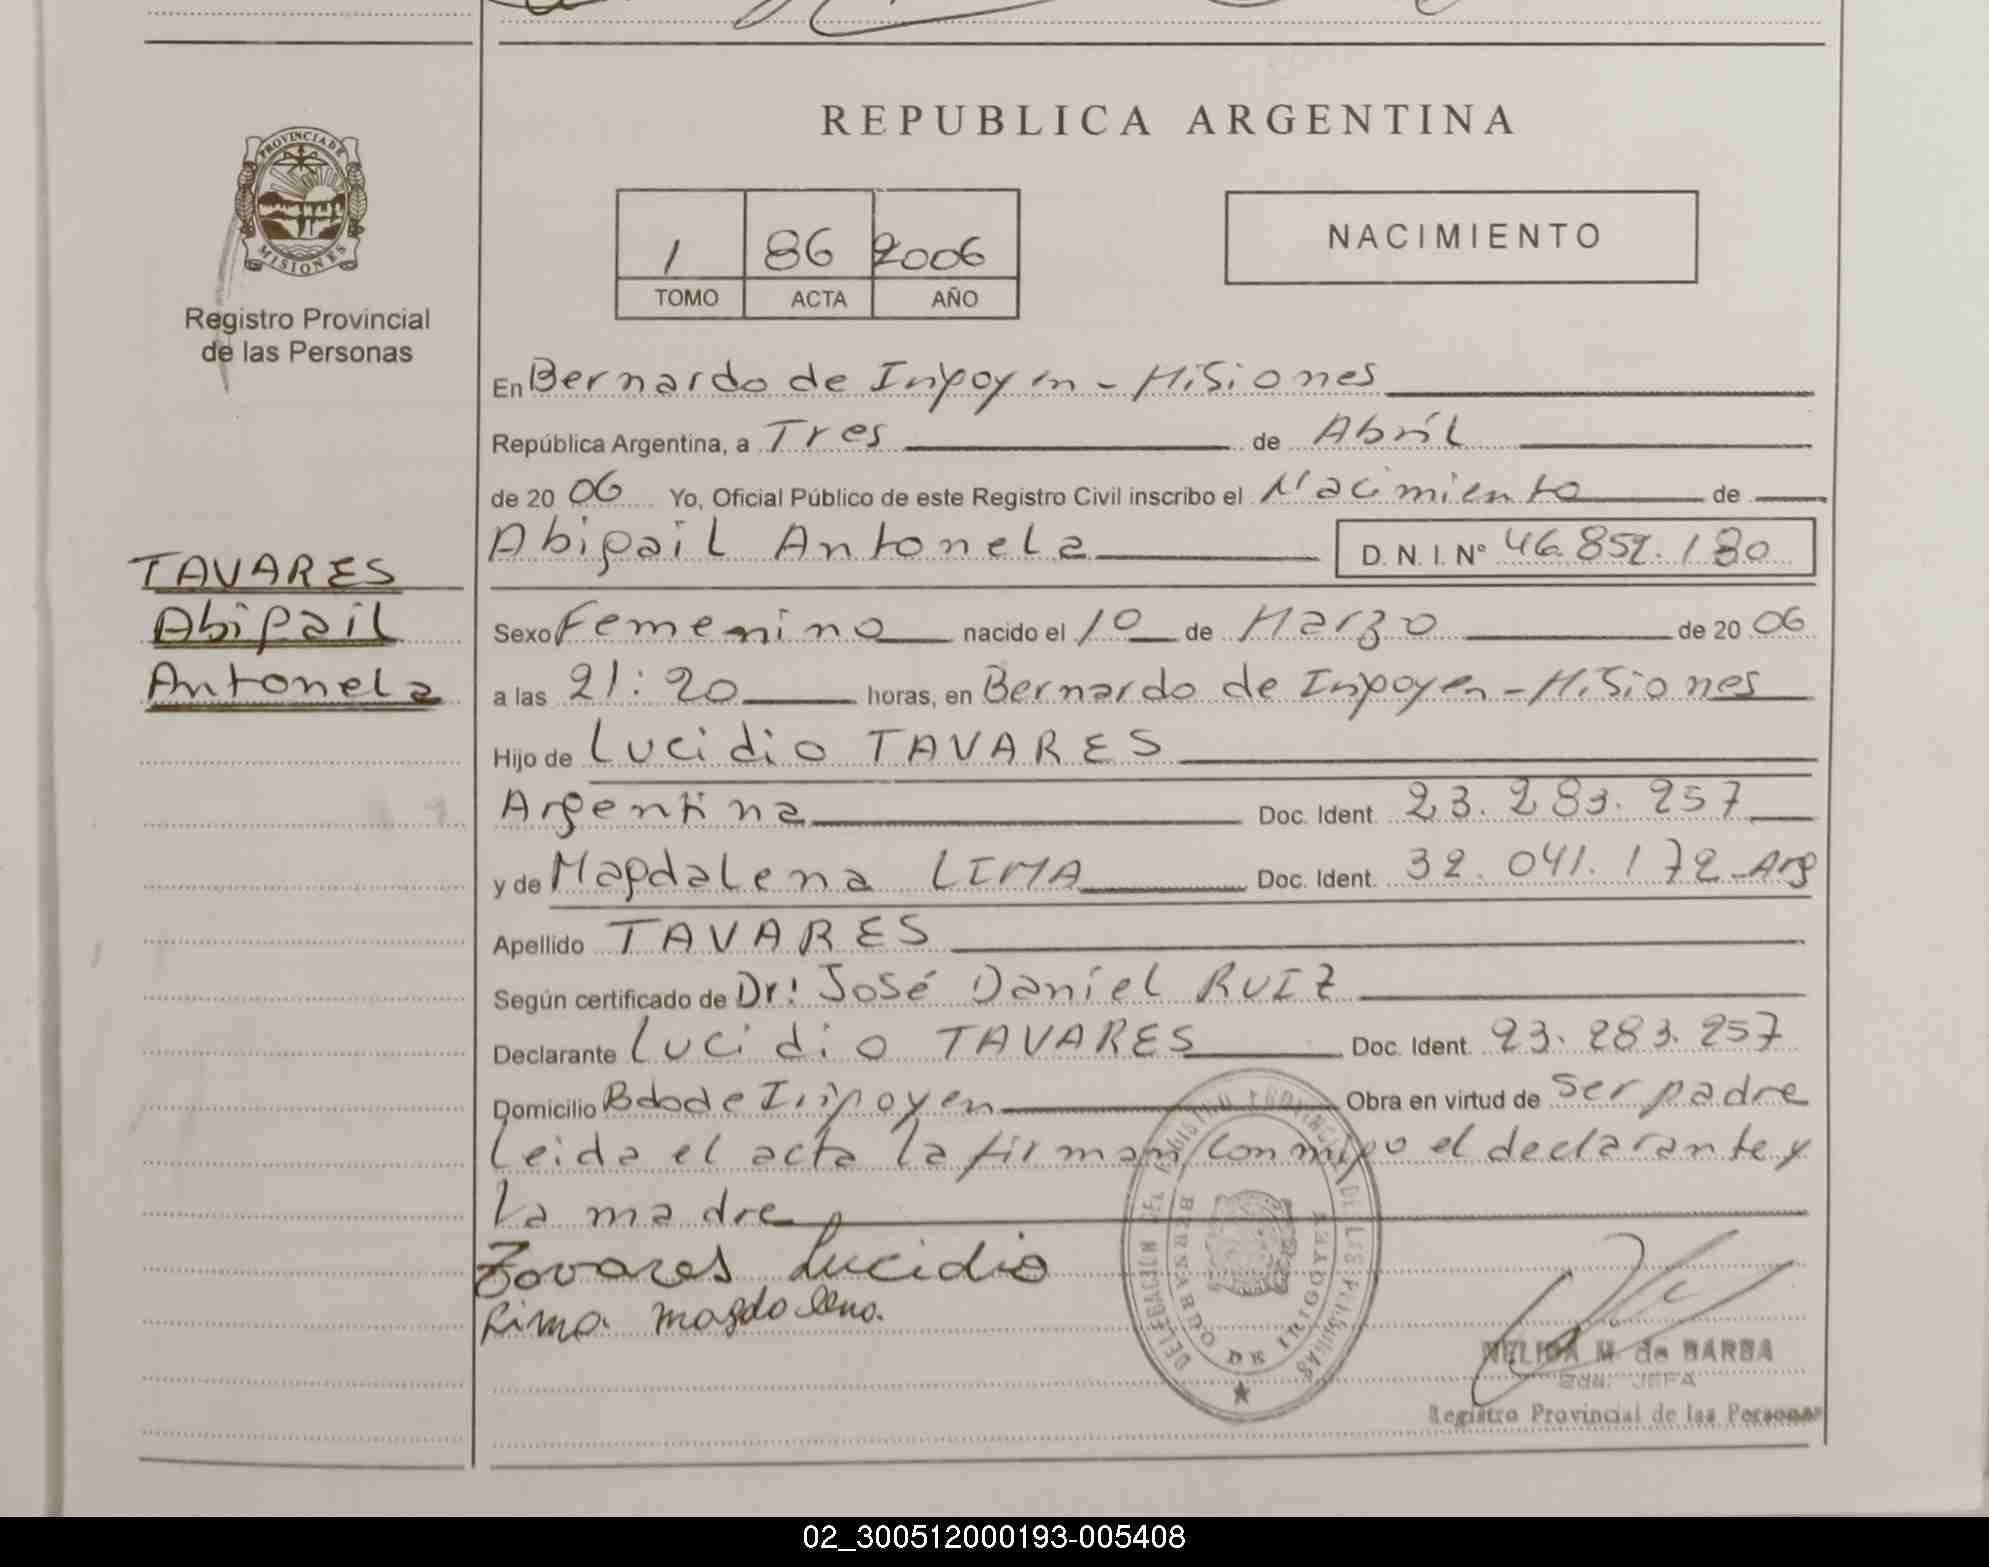 PROVINCIA DE
MISIONES
Registro Provincial
de las Personas
TAVARES
Abigail
Antonela
REPUBLICA ARGENTINA
1 86 2006
TOMO ACTA AÑO
NACIMIENTO
En Bernardo de Irigoyen - Misiones
República Argentina, a Tres de Abril
de 20 06 Yo, Oficial Público de este Registro Civil inscribo el Nacimiento de
Abigail Antonela D. N. I. N° 46.852.180
Sexo Femenino nacido el 10 de Marzo de 20 06
a las 21:20 horas, en Bernardo de Irigoyen - Misiones
Hijo de Lucidio TAVARES
Argentina Doc. Ident. 23.283.257
y de Magdalena LIMA Doc. Ident. 32.041.172 - Arg
Apellido TAVARES
Según certificado de Dr: José Daniel RUIZ
Declarante Lucidio TAVARES Doc. Ident. 23.283.257
Domicilio Bdo de Irigoyen Obra en virtud de Ser padre
Leida el acta la firman conmigo el declarante y
la madre
Tavares Lucidio
Lima Magdalena.
DELEGACION DEL REGISTRO PROVINCIAL DE LAS PERSONAS
BERNARDO DE IRIGOYEN
NELIDA M. de BARBA
JEFA
Registro Provincial de las Personas
02_300512000193-005408